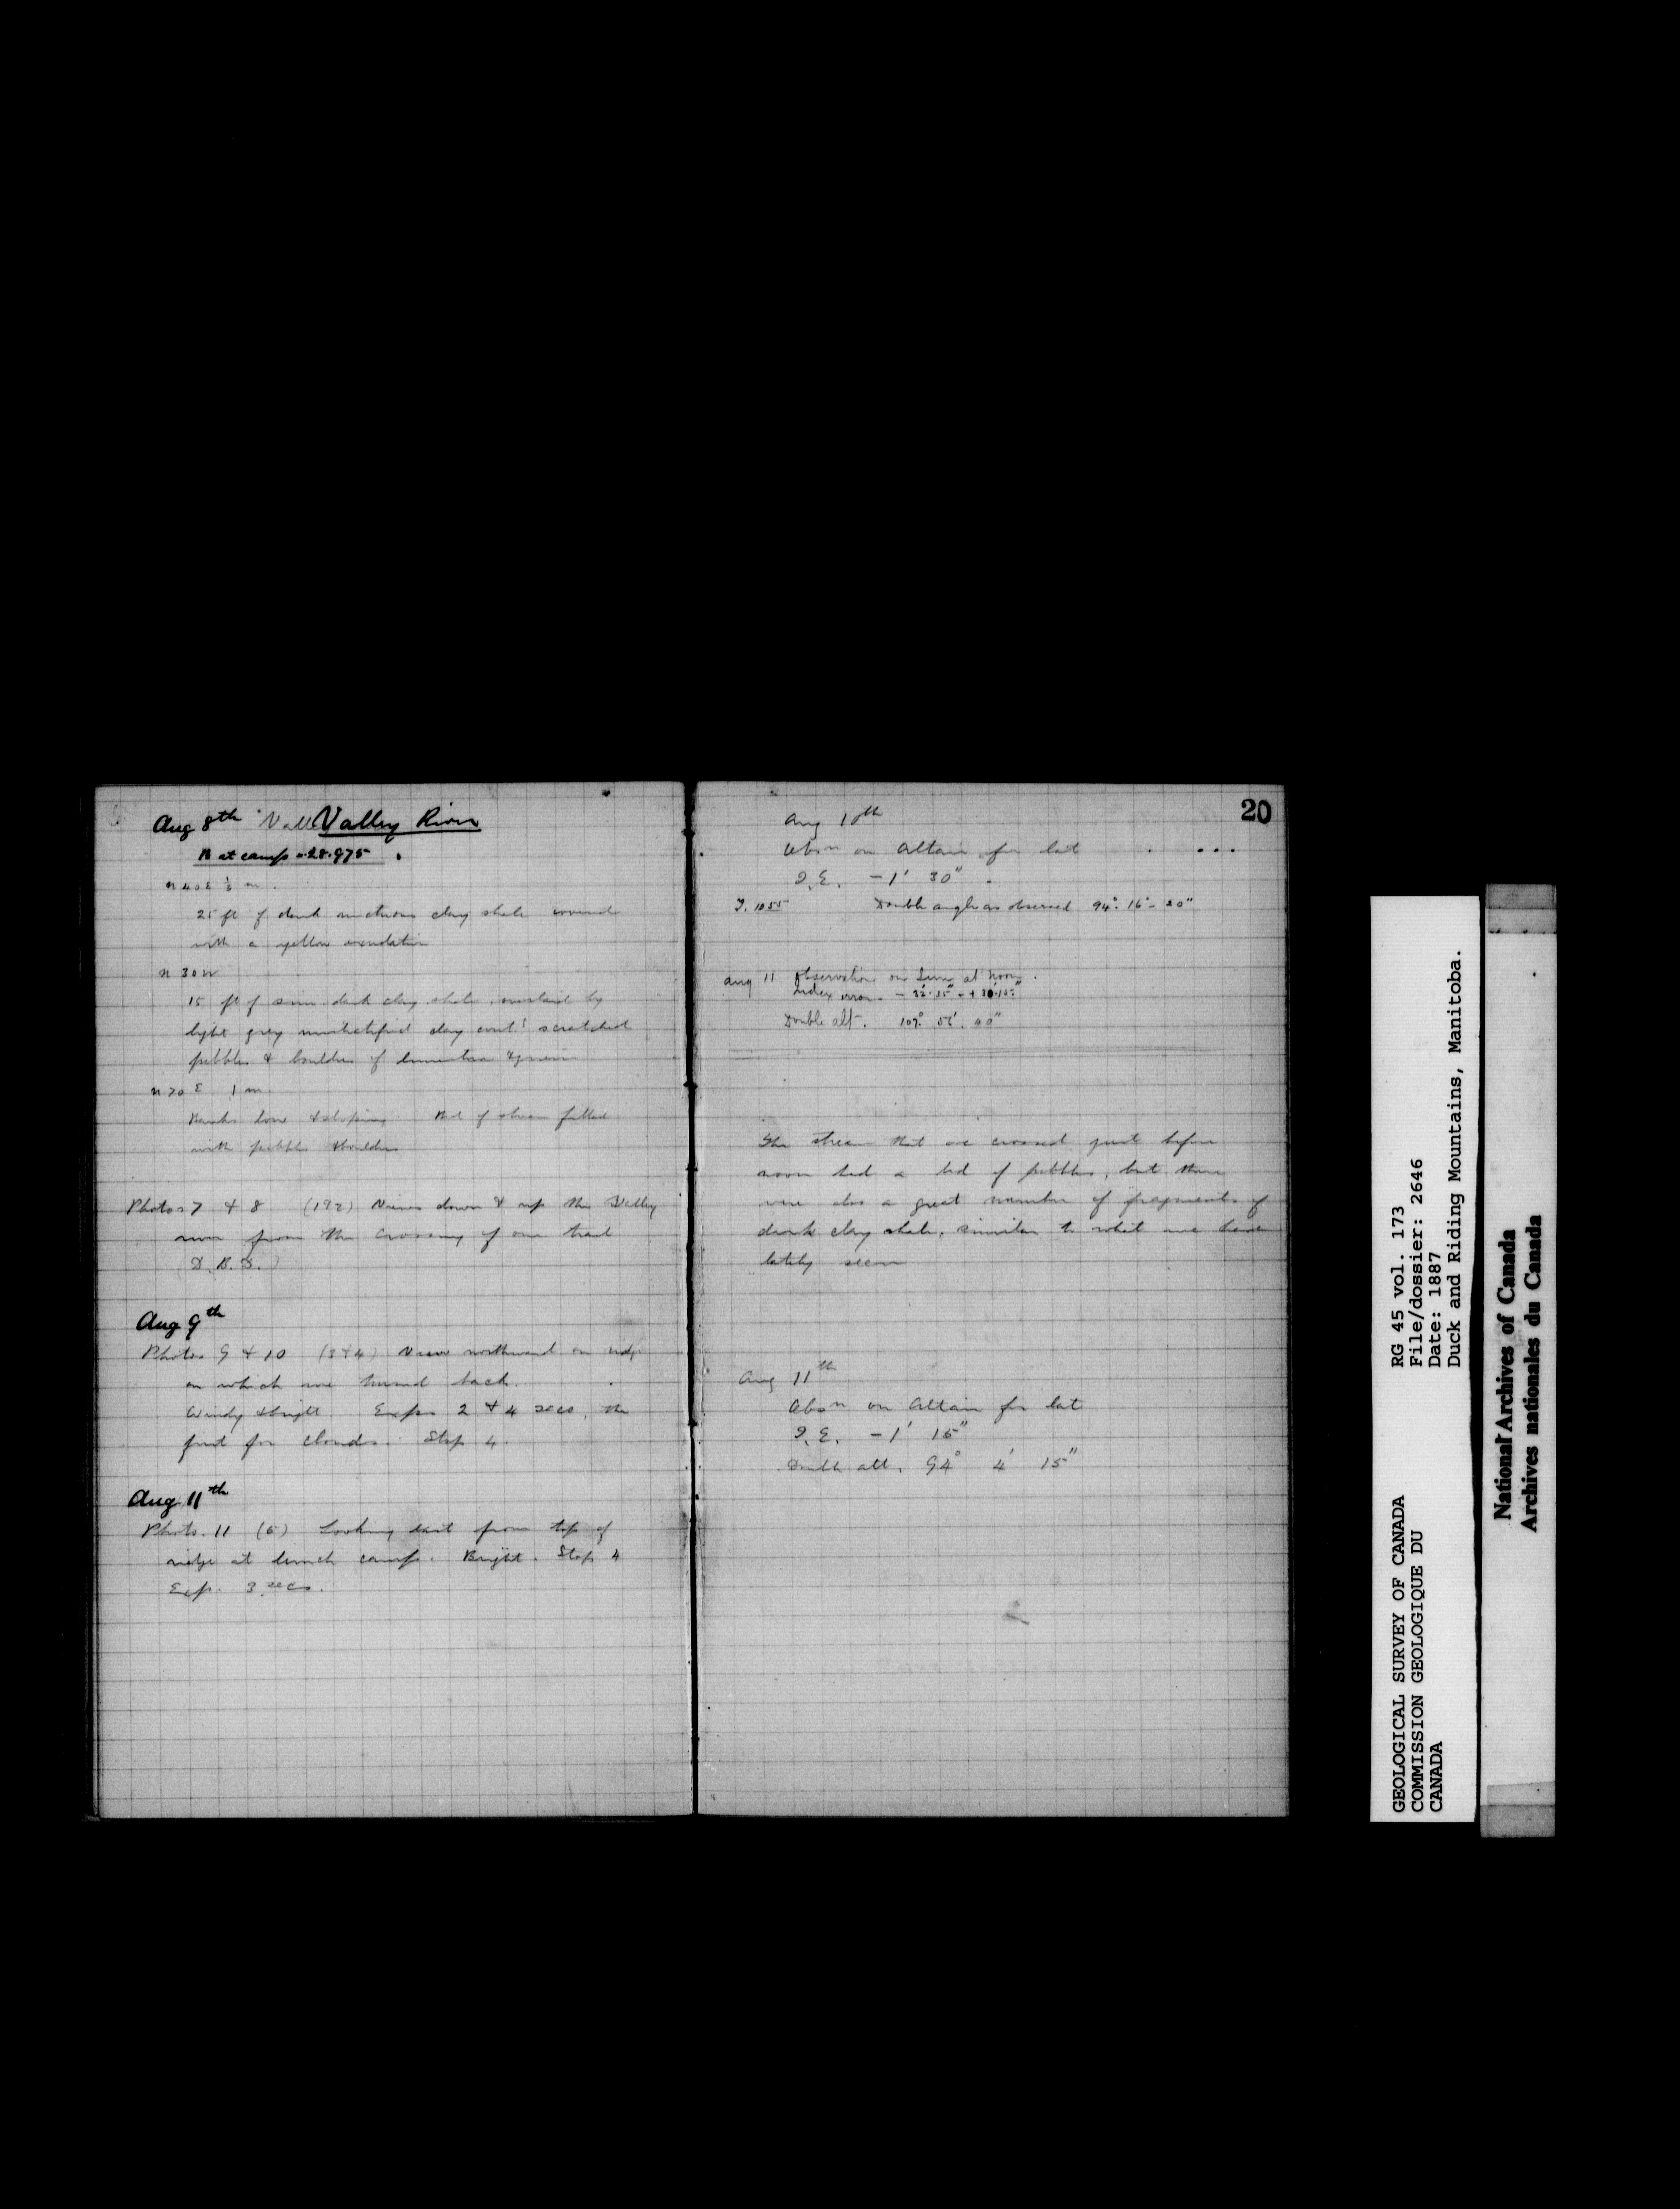 Aug 8th Vall Valley River
B at camp = 28.975
N 40 E ½ m.
25 ft of dark unctuous clay shale covered
with a yellow exudation
N 30 W
15 ft of sim. dark clay shale, overlaid by
light grey unstratified clay contg scratched
pebbles & boulders of limestone & gneiss
N 70 E 1 m.
Banks low & sloping Bed of stream filled
with pebbles & boulders
Photos 7 & 8 (1 & 2) Views down & up the Valley
river from the crossing of our trail
(D.B.D.)
Aug 9th
Photos 9 & 10 (3 & 4) View northward on ridge
on which we turned back.
Windy & bright Exps 2 & 4 secs, the
first for clouds. Stop 4.
Aug 11th
Photo. 11 (5) Looking east from top of
ridge at lunch camp. Bright. Stop 4
Exp. 3 secs.
20
Aug 10th
Obsn on Altair for lat
I.E. -1' 30"
T. 1055 Double angle as observed 94° 16' - 20"
Aug 11 Observation on Sun at noon.
Index error
Double alt. 107° 56' 40"
The stream that we crossed just before
noon had a bed of pebbles, but there
were also a great number of fragments of
dark clay shale, similar to what we have
lately seen
Aug 11th
Obsn on Altair for lat
I.E. -1' 15"
Double alt. 94° 4' 15"
GEOLOGICAL SURVEY OF CANADA
COMMISSION GEOLOGIQUE DU
CANADA
RG 45 vol. 173
File/dossier: 2646
Date: 1887
Duck and Riding Mountains, Manitoba.
National Archives of Canada
Archives nationales du Canada